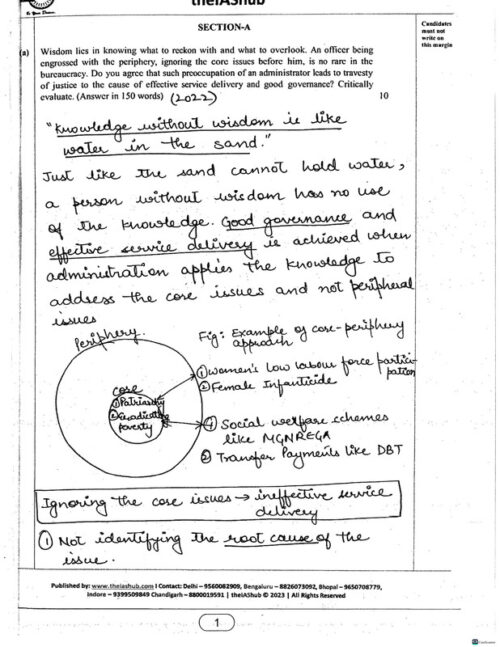 theIAShub
SECTION-A
Candidates
must not
write on
this margin
(a) Wisdom lies in knowing what to reckon with and what to overlook. An officer being
engrossed with the periphery, ignoring the core issues before him, is no rare in the
bureaucracy. Do you agree that such preoccupation of an administrator leads to travesty
of justice to the cause of effective service delivery and good governance? Critically
evaluate. (Answer in 150 words) (2022) 10
"Knowledge without wisdom is like
water in the sand."
Just like the sand cannot hold water,
a person without wisdom has no use
of the knowledge. Good governance and
effective service delivery is achieved when
administration applies the knowledge to
address the core issues and not peripheral
issues
Periphery.
Fig: Example of core-periphery
approach
① Women's low labour force partici-
pation
② Female Infanticide
core
① Patriarchy
② Eradicating
poverty
① Social welfare schemes
like MGNREGA
② Transfer Payments like DBT
Ignoring the core issues → ineffective service
delivery
① Not identifying the root cause of the
issue.
Published by: www.theiashub.com I Contact: Delhi – 9560082909, Bengaluru – 8826073092, Bhopal – 9650708779,
Indore – 9399509849 Chandigarh – 8800019591 | theIAShub © 2023 | All Rights Reserved
1